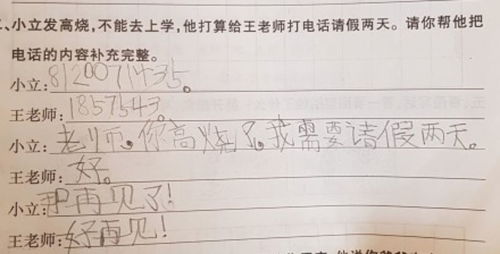 二、小立发高烧,不能去上学,他打算给王老师打电话请假两天。请你帮他把
电话的内容补充完整。
小立:8120071435。
王老师:1857543。
小立:老师。你高烧了。我需要请假两天。
王老师:好。
小立:再见了!
王老师:好再见!